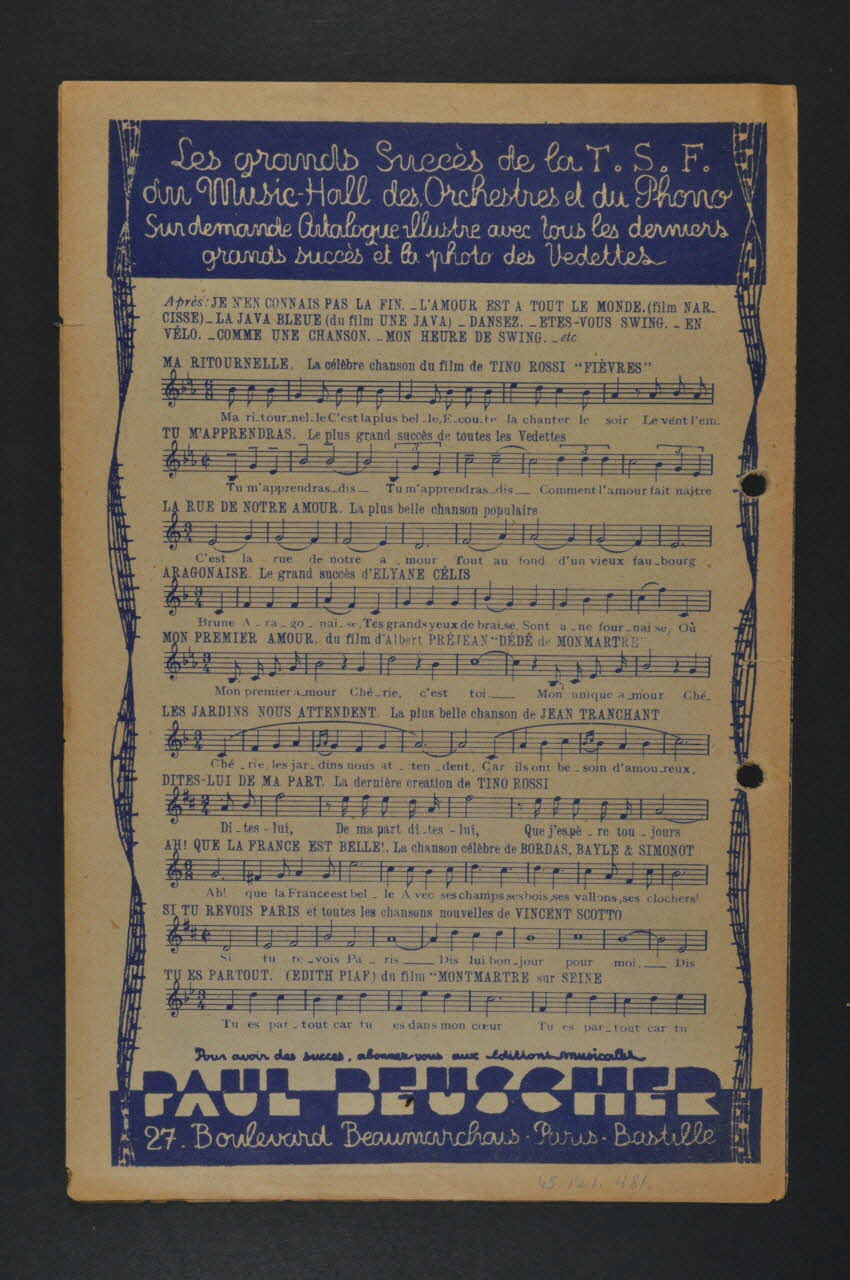 Les grands Succès de la T. S. F.
du Music-Hall des Orchestres et du Phono
Sur demande Catalogue illustre avec tous les derniers
grands succès et la photo des Vedettes
Après: JE N'EN CONNAIS PAS LA FIN. _ L'AMOUR EST A TOUT LE MONDE.(film NAR_
CISSE)_ LA JAVA BLEUE (du film UNE JAVA) _ DANSEZ. _ ETES-VOUS SWING. _ EN
VÉLO. _ COMME UNE CHANSON. _ MON HEURE DE SWING. _ etc
MA RITOURNELLE. La célèbre chanson du film de TINO ROSSI "FIÈVRES"
Ma ri_tour_nel_le C'est la plus bel_le, E_cou_te la chanter le soir Le vent l'em_
TU M'APPRENDRAS. Le plus grand succès de toutes les Vedettes
3 3 3
Tu m'apprendras_dis _ Tu m'apprendras_dis _ Comment l'amour fait naître
LA RUE DE NOTRE AMOUR. La plus belle chanson populaire
C'est la rue de notre a _ mour Tout au fond d'un vieux fau_bourg
ARAGONAISE. Le grand succès d'ELYANE CÉLIS
Brune A _ ra _ go _ nai _ se, Tes grands yeux de braise, Sont u _ ne four_nai se, Où
MON PREMIER AMOUR. du film d'Albert PRÉJEAN "DÉDÉ de MONMARTRE"
Mon premier a_mour Ché_rie, c'est toi.___ Mon unique a_mour Ché_
LES JARDINS NOUS ATTENDENT. La plus belle chanson de JEAN TRANCHANT
Ché _ rie, les jar _ dins nous at _ ten _ dent, Car ils ont be _ soin d'amou_reux,
DITES-LUI DE MA PART. La dernière creation de TINO ROSSI
Di_tes-lui, De ma part di_tes-lui, Que j'espè _ re tou_jours
AH! QUE LA FRANCE EST BELLE!. La chanson célèbre de BORDAS, BAYLE & SIMONOT
Ah! que la France est bel _ le Avec ses champs ses bois, ses vallons, ses clochers!
SI TU REVOIS PARIS et toutes les chansons nouvelles de VINCENT SCOTTO
Si tu re_vois Pa _ ris ___ Dis lui bon_jour pour moi, ___ Dis
TU ES PARTOUT. (EDITH PIAF) du film "MONTMARTRE sur SEINE
Tu es par_tout car tu es dans mon cœur Tu es par_tout car tu
Pour avoir des succes, abonnez vous aux editions musicales
PAUL BEUSCHER
27. Boulevard Beaumarchais - Paris - Bastille